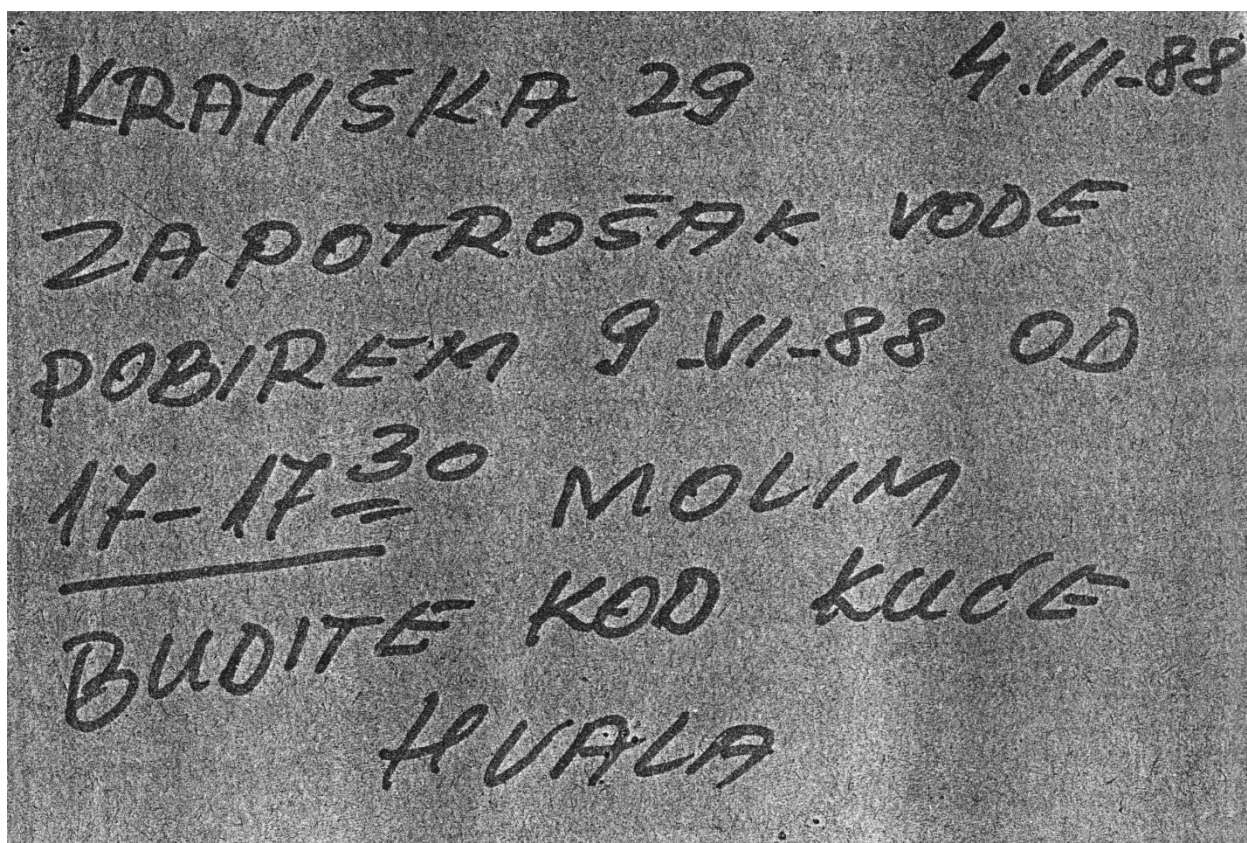 KRAJIŠKA 29 4.VI-88
ZA POTROŠAK VODE
POBIREM 9-VI-88 OD
17-17³⁰ MOLIM
BUDITE KOD KUĆE
HVALA